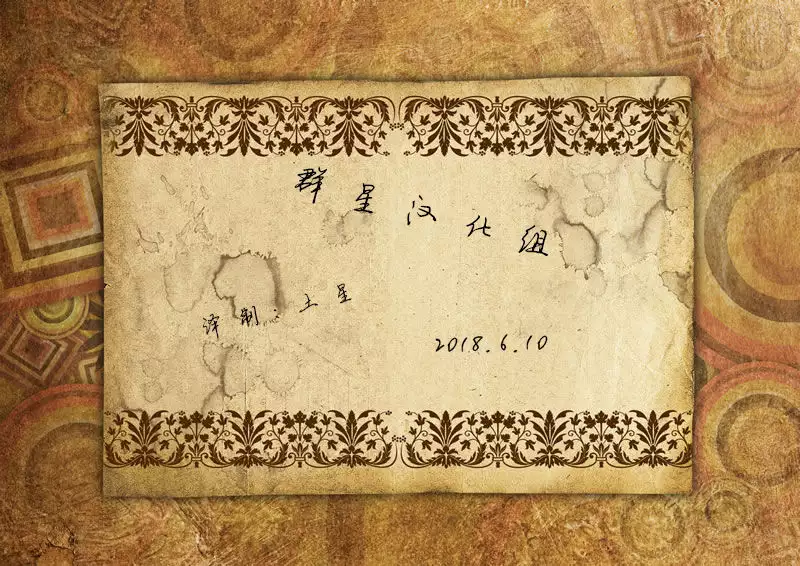 群星汉化组
译制:土星
2018.6.10